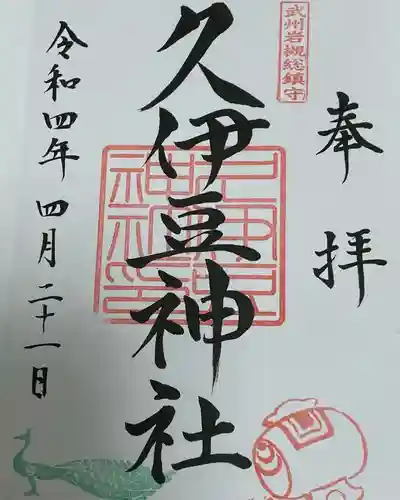 武州岩槻総鎮守
奉拝
久伊豆神社
令和四年四月二十一日